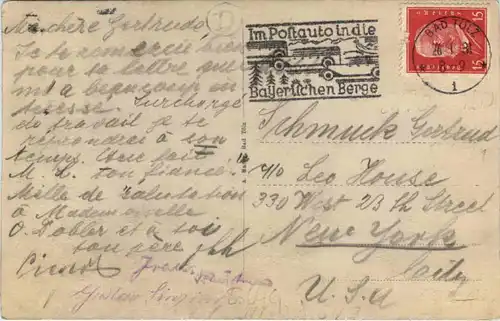 Ma chère Gertrude,
Je te remercie bien
pour ta lettre qui
m'a beaucoup in-
teresse. Surchargé
de travail je te
repondrai à son
temps. Que fait
M. L. ton fiancé.
Mille de salutation
à Mademoiselle
O. Tobler et à toi
ton père
Im Postauto in die
Bayerischen Berge
BAD TÖLZ
1
15
15
Schmuck Gertrud
c/o Leo House
330 West 23 th Street
New York
City
U.S.A
Gustav